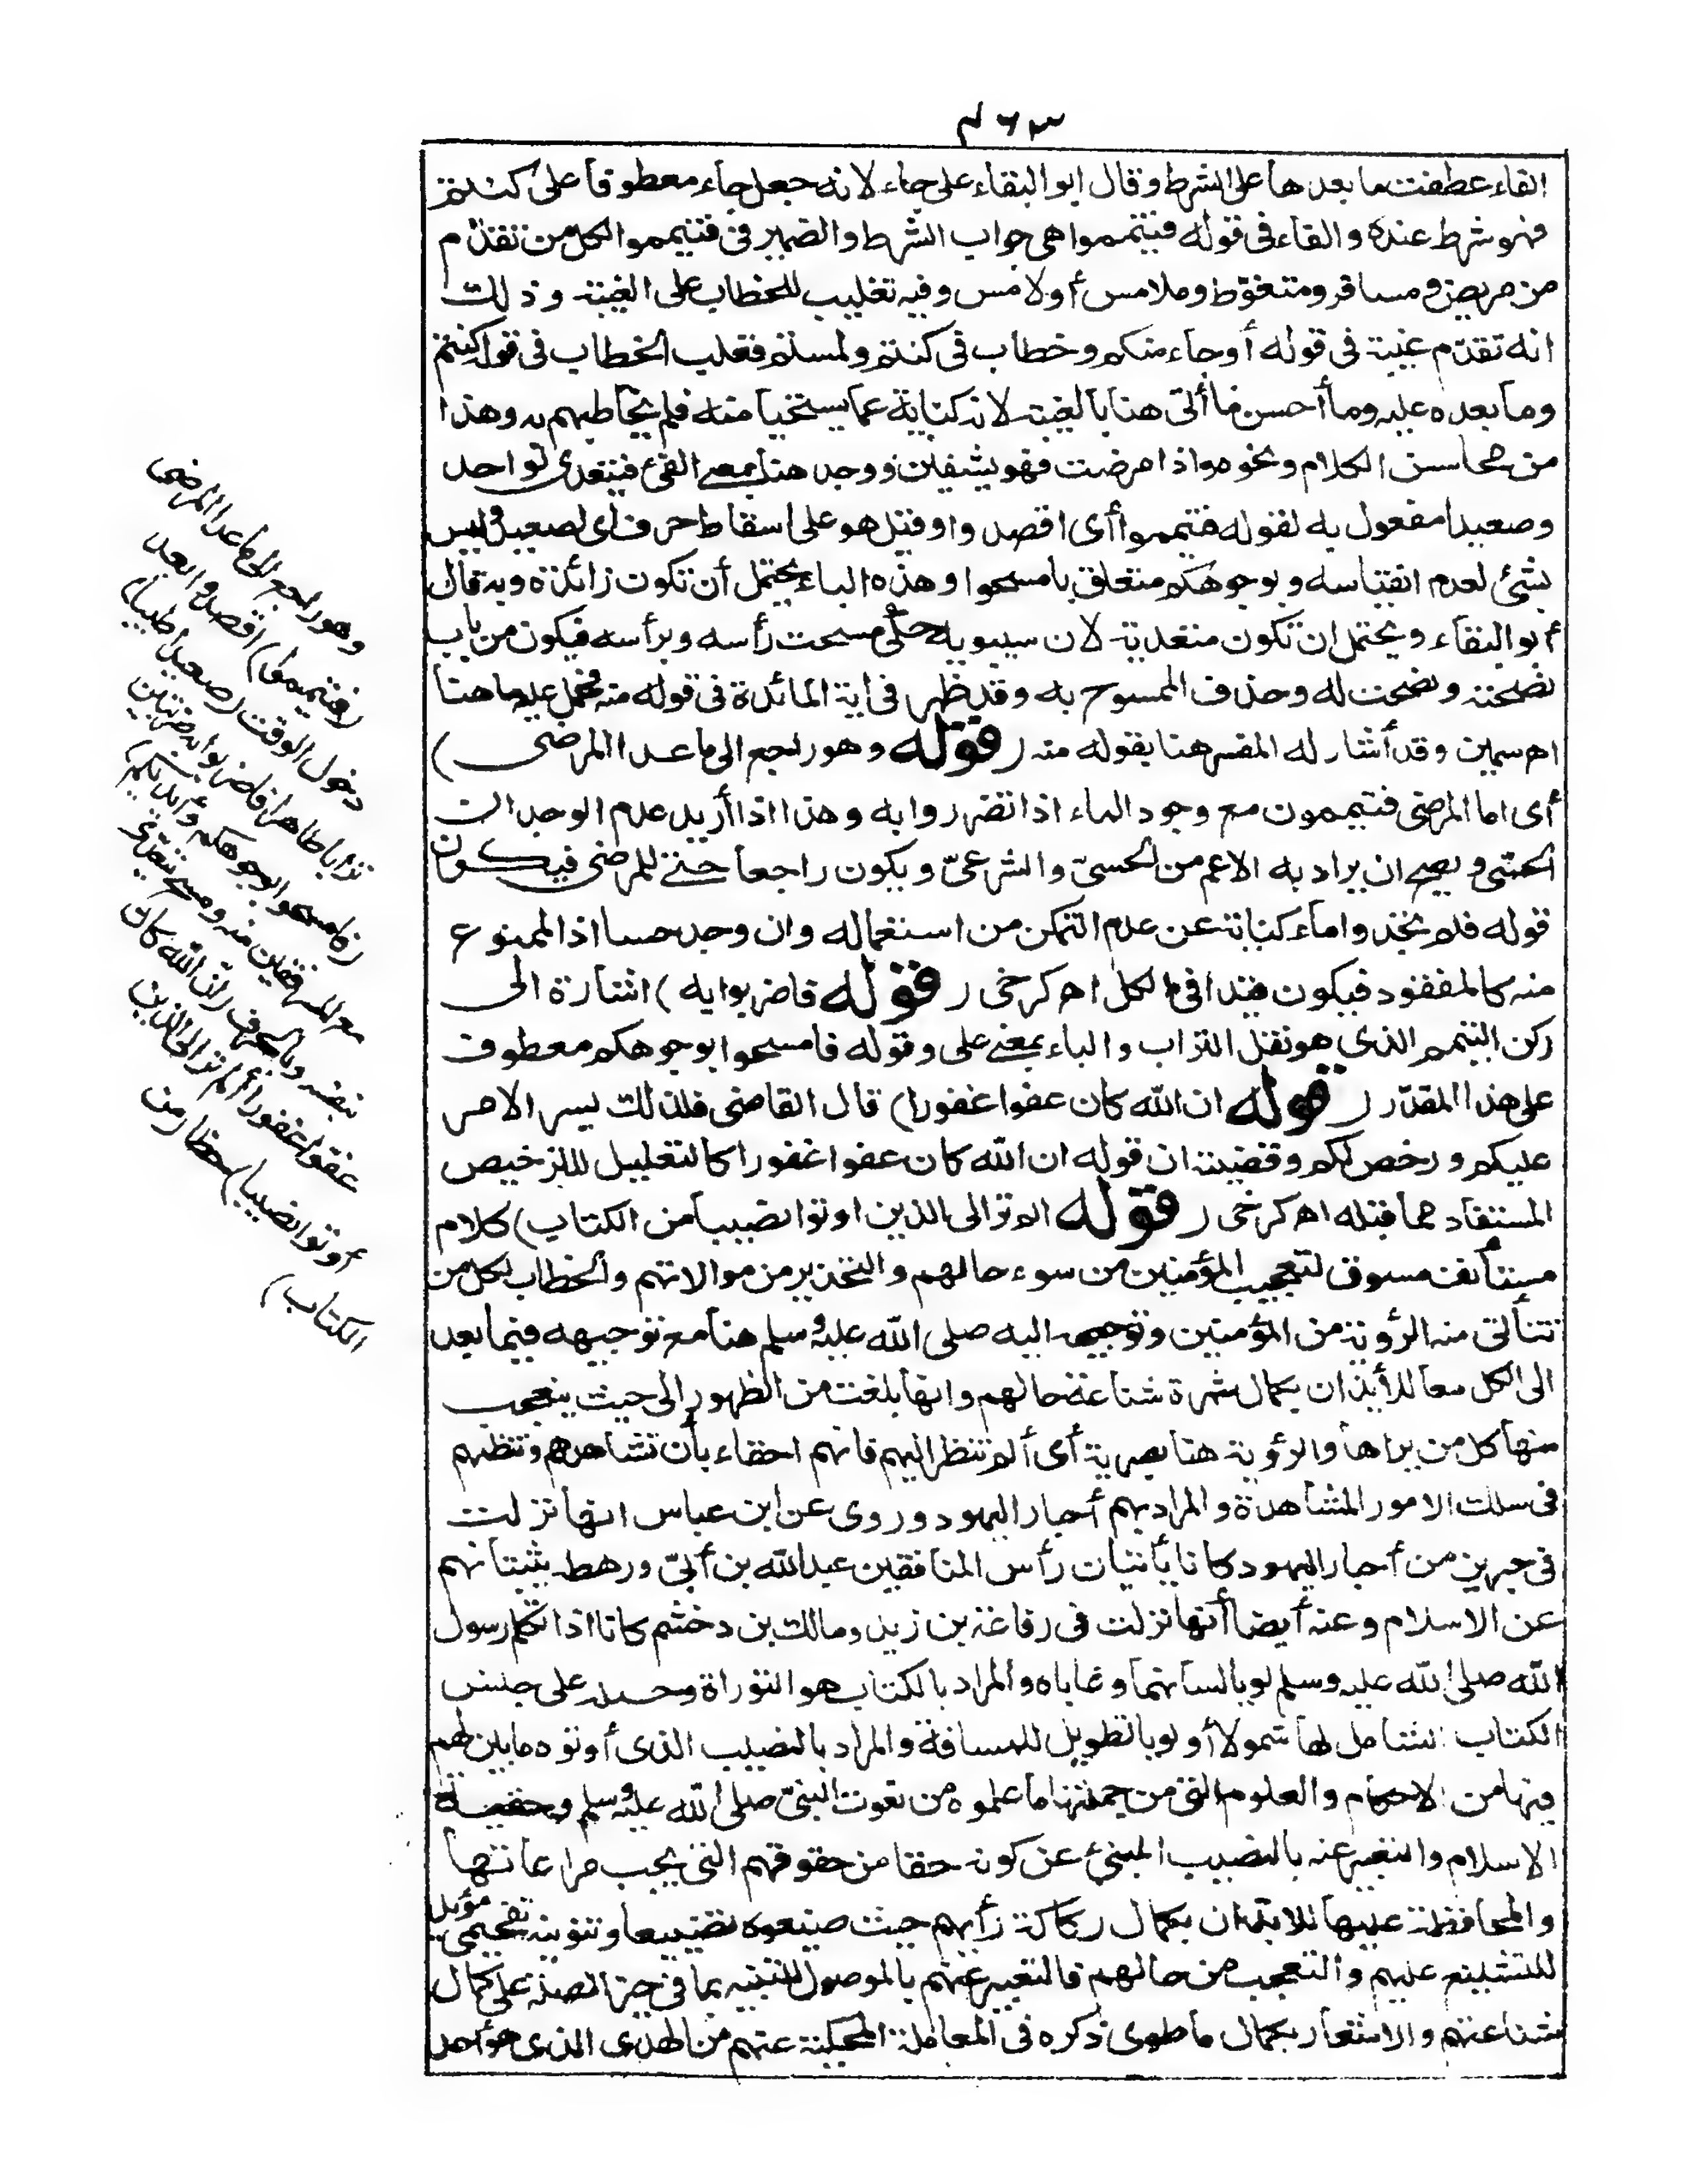 ٤٦٣
الفاء عطفت ما بعدها على الشرط وقال ابو البقاء على جاء لانه جعل جاء معطوفا على كنتم
فهو شرط عنده والفاء فى قوله فتيمموا هى جواب الشرط والضمير فى فتيمموا لكل من تقدّم
من مريض ومسافر ومتغوّط وملامس أو لامس وفيه تغليب للخطاب على الغيبة وذلك
انه تقدّم غيبة فى قوله أو جاء منكم وخطاب فى كنتم ولمستم فغلب الخطاب فى قوله كنتم
وما بعده عليه وما أحسن ما أتى هنا بالغيبة لانه كناية عما يستحيا منه فلم يخاطبهم به وهذا
من محاسن الكلام ونحوه واذا مرضت فهو يشفين ووجد هنا بمعنى لقى فيتعدى لواحد
وصعيدا مفعول به لقوله فتيمموا أى اقصدوا وقيل هو على اسقاط حرف اى لصعيد وليس
بشئ لعدم اقتياسه وبوجوهكم متعلق بامسحوا وهذه الباء يحتمل أن تكون زائدة وبه قال
أبو البقاء ويحتمل ان تكون متعدية لان سيبويه حكى مسحت رأسه وبرأسه فيكون من باب
نصحته ونصحت له وحذف الممسوح به وقد ظهر فى اية المائدة فى قوله منه فحمل عليه ما هنا
اهـ سمين وقد أشار له المفسر هنا بقوله منه (قوله وهو راجع الى ما عدا المرضى)
أى اما المرضى فتيممون مع وجود الماء اذا تضرروا به وهذا اذا أريد عدم الوجدان
الحسّى ويصح ان يراد به الاعم من الحسىّ والشرعىّ ويكون راجعا حتى للمرضى فيكون
قوله فلم تجدوا ماء كناية عن عدم التمكن من استعماله وان وجد حسا اذ الممنوع
منه كالمفقود فيكون قيدا فى الكل اهـ كرخى (قوله فاضربوا به) اشارة الى
ركن التيمم الذى هو نقل التراب والباء بمعنى على وقوله فامسحوا بوجوهكم معطوف
على هذا المقدّر (قوله ان الله كان عفوا غفورا) قال القاضى فلذلك يسر الامر
عليكم ورخص لكم وقضيته ان قوله ان الله كان عفوا غفورا كالتعليل للترخيص
المستفاد مما قبله اهـ كرخى (قوله الم تر الى الذين اوتوا نصيبا من الكتاب) كلام
مستأنف مسوق لتعجيب المؤمنين من سوء حالهم والتحذير من موالاتهم والخطاب لكل من
تتأتى منه الرؤية من المؤمنين وتوجيهه اليه صلى الله عليه وسلم هنا مع توجيهه فيما بعد
الى الكل معا للأيذان بكمال شهرة شناعة حالهم وانها بلغت من الظهور الى حيث يتعجب
منها كل من يراها والرؤية هنا بصرية أى ألم تنظر اليهم فانهم احقاء بأن تشاهدهم وتنظمهم
فى سلك الامور المشاهدة والمراد بهم أحبار اليهود وروى عن ابن عباس انها نزلت
فى حبرين من أحبار اليهود كانا يأتيان رأس المنافقين عبد الله بن أبىّ ورهطه يثبطانهم
عن الاسلام وعنه أيضا أنها نزلت فى رفاعة بن زيد ومالك بن دخشم كانا اذا تكلم رسول
الله صلى الله عليه وسلم لويا لسانهما وعاباه والمراد بالكتاب هو التوراة وحمله على جنس
الكتاب الشامل لها شمولا أوليا تطويل للمسافة والمراد بالنصيب الذى أوتوه ما بين لهم
فيها من الاحكام والعلوم التى من جملتها ما علموه من نعوت النبىّ صلى الله عليه وسلم وحقية
الاسلام والتعبير عنه بالنصيب المنبئ عن كونه حقا من حقوقهم التى يجب مراعاتها
والمحافظة عليها للايذان بكمال ركاكة رأيهم حيث ضيعوه تضييعا وتنوينه تفخيمى مؤيد
للتشنيع عليهم والتعجيب من حالهم فالتعبير عنهم بالموصول للتنبيه بما فى حيز الصلة على كمال
شناعتهم والاشعار بكمال ما طوى ذكره فى المعاملة المحكية عنهم من الهدى الذى هو أحد
وهو راجع الى ما عدا المرضى
(فتيمموا) اقصدوا بعد
دخول الوقت (صعيدا طيبا)
ترابا طاهرا فاضربوا به ضربتين
(فامسحوا بوجوهكم وأيديكم)
مع المرفقين منه ومسح يتعدّى
بنفسه وبالحرف (ان الله كان
عفوا غفورا ألم تر الى الذين
أوتوا نصيبا) حظا (من
الكتاب)